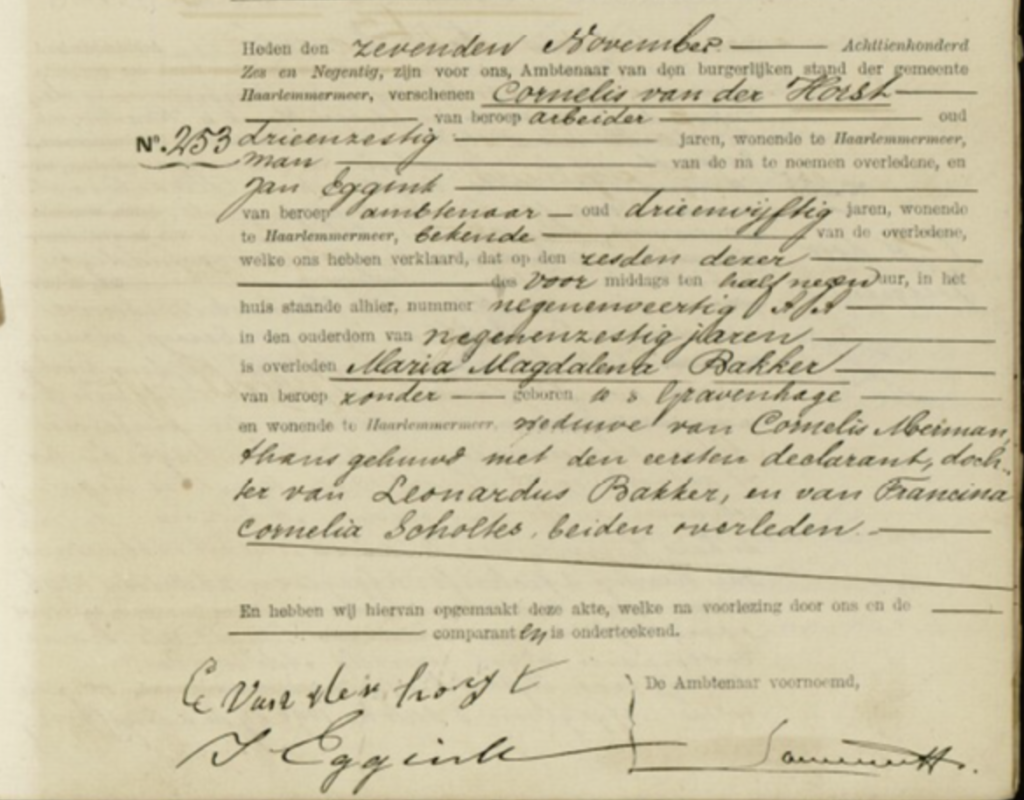 Heden den zevenden November Achttienhonderd
Zes en Negentig, zijn voor ons, Ambtenaar van den burgerlijken stand der gemeente
Haarlemmermeer, verschenen Cornelis van der Horst
van beroep arbeider oud
No. 253 drieenzestig jaren, wonende te Haarlemmermeer,
man van de na te noemen overledene, en
Jan Eggink
van beroep ambtenaar oud drieenvijftig jaren, wonende
te Haarlemmermeer, bekende van de overledene,
welke ons hebben verklaard, dat op den zesden dezer
des voor middags ten half negen uur, in het
huis staande alhier, nummer negenenveertig AA
in den ouderdom van negenenzestig jaren
is overleden Maria Magdalena Bakker
van beroep zonder geboren te 's Gravenhage
en wonende te Haarlemmermeer, weduwe van Cornelis Meiman,
thans gehuwd met den eersten declarant, doch-
ter van Leonardus Bakker, en van Francina
Cornelia Scholtes, beiden overleden.
En hebben wij hiervan opgemaakt deze akte, welke na voorlezing door ons en de
comparanten is onderteekend.
C Van der horst
De Ambtenaar voornoemd,
J Eggink